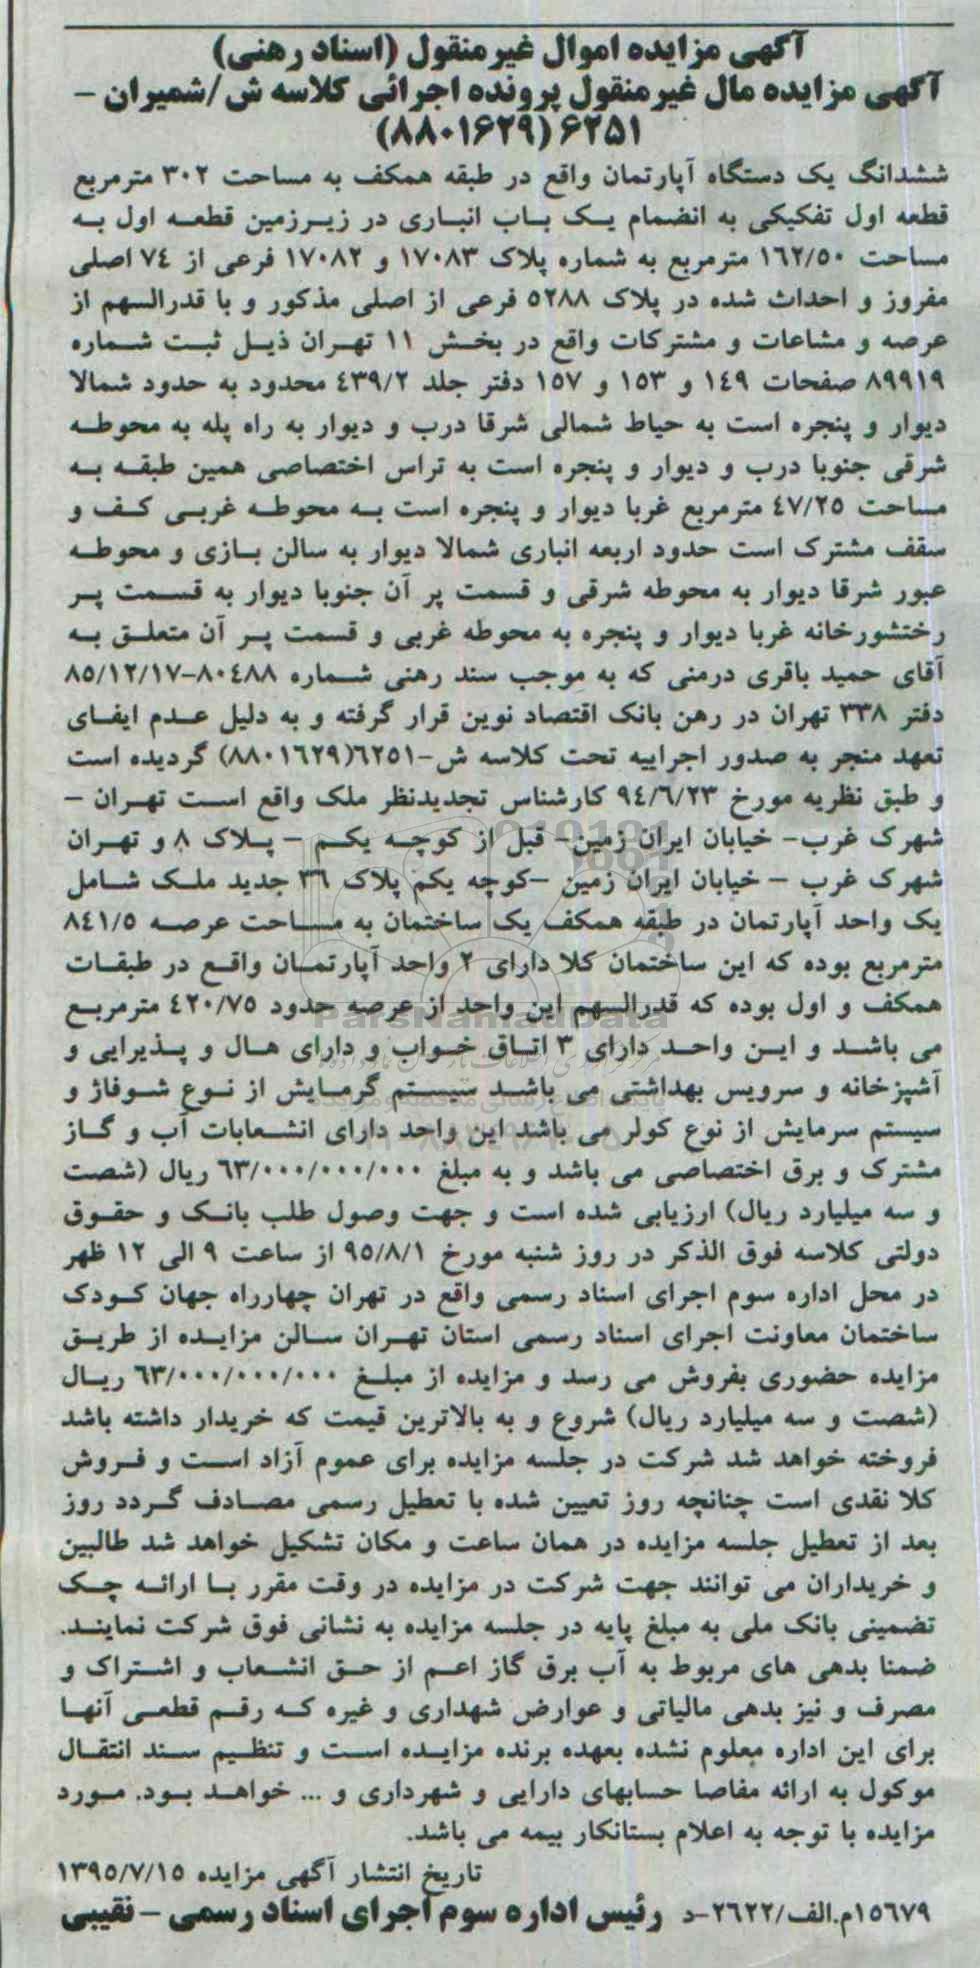 آگهی مزایده اموال غیرمنقول (اسناد رهنی)
آگهی مزایده مال غیرمنقول پرونده اجرائی کلاسه ش/شمیران –
۶۲۵۱ (۸۸۰۱۶۲۹)
ششدانگ یک دستگاه آپارتمان واقع در طبقه همکف به مساحت ۳۰۲ مترمربع
قطعه اول تفکیکی به انضمام یک باب انباری در زیرزمین قطعه اول به
مساحت ۱۶۲/۵۰ مترمربع به شماره پلاک ۱۷۰۸۳ و ۱۷۰۸۲ فرعی از ۷٤ اصلی
مفروز و احداث شده در پلاک ۵۲۸۸ فرعی از اصلی مذکور و با قدرالسهم از
عرصه و مشاعات و مشترکات واقع در بخش ۱۱ تهران ذیل ثبت شماره
۸۹۹۱۹ صفحات ۱٤۹ و ۱۵۳ و ۱۵۷ دفتر جلد ٤۳۹/۲ محدود به حدود شمالا
دیوار و پنجره است به حیاط شمالی شرقا درب و دیوار به راه پله به محوطه
شرقی جنوبا درب و دیوار و پنجره است به تراس اختصاصی همین طبقه به
مساحت ٤۷/۲۵ مترمربع غربا دیوار و پنجره است به محوطه غربی کف و
سقف مشترک است حدود اربعه انباری شمالا دیوار به سالن بازی و محوطه
عبور شرقا دیوار به محوطه شرقی و قسمت پر آن جنوبا دیوار به قسمت پر
رختشورخانه غربا دیوار و پنجره به محوطه غربی و قسمت پر آن متعلق به
آقای حمید باقری درمنی که به موجب سند رهنی شماره ۸۰٤۸۸-۸۵/۱۲/۱۷
دفتر ۳۳۸ تهران در رهن بانک اقتصاد نوین قرار گرفته و به دلیل عدم ایفای
تعهد منجر به صدور اجراییه تحت کلاسه ش-۶۲۵۱(۸۸۰۱۶۲۹) گردیده است
و طبق نظریه مورخ ۹٤/۶/۲۳ کارشناس تجدیدنظر ملک واقع است تهران –
شهرک غرب- خیابان ایران زمین- قبل از کوچه یکم – پلاک ۸ و تهران
شهرک غرب – خیابان ایران زمین –کوچه یکم پلاک ۳۶ جدید ملک شامل
یک واحد آپارتمان در طبقه همکف یک ساختمان به مساحت عرصه ۸٤۱/۵
مترمربع بوده که این ساختمان کلا دارای ۲ واحد آپارتمان واقع در طبقات
همکف و اول بوده که قدرالسهم این واحد از عرصه حدود ٤۲۰/۷۵ مترمربع
می باشد و این واحد دارای ۳ اتاق خواب و دارای هال و پذیرایی و
آشپزخانه و سرویس بهداشتی می باشد سیستم گرمایش از نوع شوفاژ و
سیستم سرمایش از نوع کولر می باشد این واحد دارای انشعابات آب و گاز
مشترک و برق اختصاصی می باشد و به مبلغ ۶۳/۰۰۰/۰۰۰/۰۰۰ ریال (شصت
و سه میلیارد ریال) ارزیابی شده است و جهت وصول طلب بانک و حقوق
دولتی کلاسه فوق الذکر در روز شنبه مورخ ۹۵/۸/۱ از ساعت ۹ الی ۱۲ ظهر
در محل اداره سوم اجرای اسناد رسمی واقع در تهران چهارراه جهان کودک
ساختمان معاونت اجرای اسناد رسمی استان تهران سالن مزایده از طریق
مزایده حضوری بفروش می رسد و مزایده از مبلغ ۶۳/۰۰۰/۰۰۰/۰۰۰ ریال
(شصت و سه میلیارد ریال) شروع و به بالاترین قیمت که خریدار داشته باشد
فروخته خواهد شد شرکت در جلسه مزایده برای عموم آزاد است و فروش
کلا نقدی است چنانچه روز تعیین شده با تعطیل رسمی مصادف گردد روز
بعد از تعطیل جلسه مزایده در همان ساعت و مکان تشکیل خواهد شد طالبین
و خریداران می توانند جهت شرکت در مزایده در وقت مقرر با ارائه چک
تضمینی بانک ملی به مبلغ پایه در جلسه مزایده به نشانی فوق شرکت نمایند.
ضمنا بدهی های مربوط به آب برق گاز اعم از حق انشعاب و اشتراک و
مصرف و نیز بدهی مالیاتی و عوارض شهداری و غیره که رقم قطعی آنها
برای این اداره معلوم نشده بعهده برنده مزایده است و تنظیم سند انتقال
موکول به ارائه مفاصا حسابهای دارایی و شهرداری و ... خواهد بود. مورد
مزایده با توجه به اعلام بستانکار بیمه می باشد.
تاریخ انتشار آگهی مزایده ۱۳۹۵/۷/۱۵
۱۵۶۷۹م.الف/۲۶۲۲-د رئیس اداره سوم اجرای اسناد رسمی – نقیبی
ParsNamadData